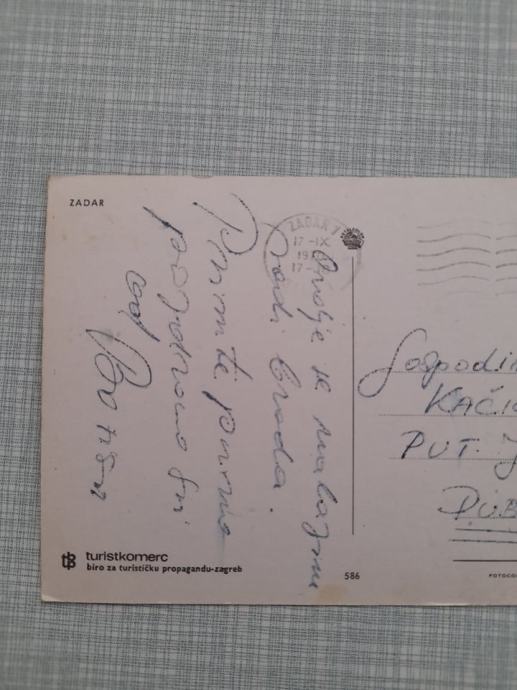 ZADAR
ZADAR 7
17-IX
19
17-
Ovdje se nalazim
radi broda.
Primite puno
pozdrava svi
od
Gospodin
KAČIĆ
PUT
DUB
turistkomerc
biro za turističku propagandu-zagreb
586